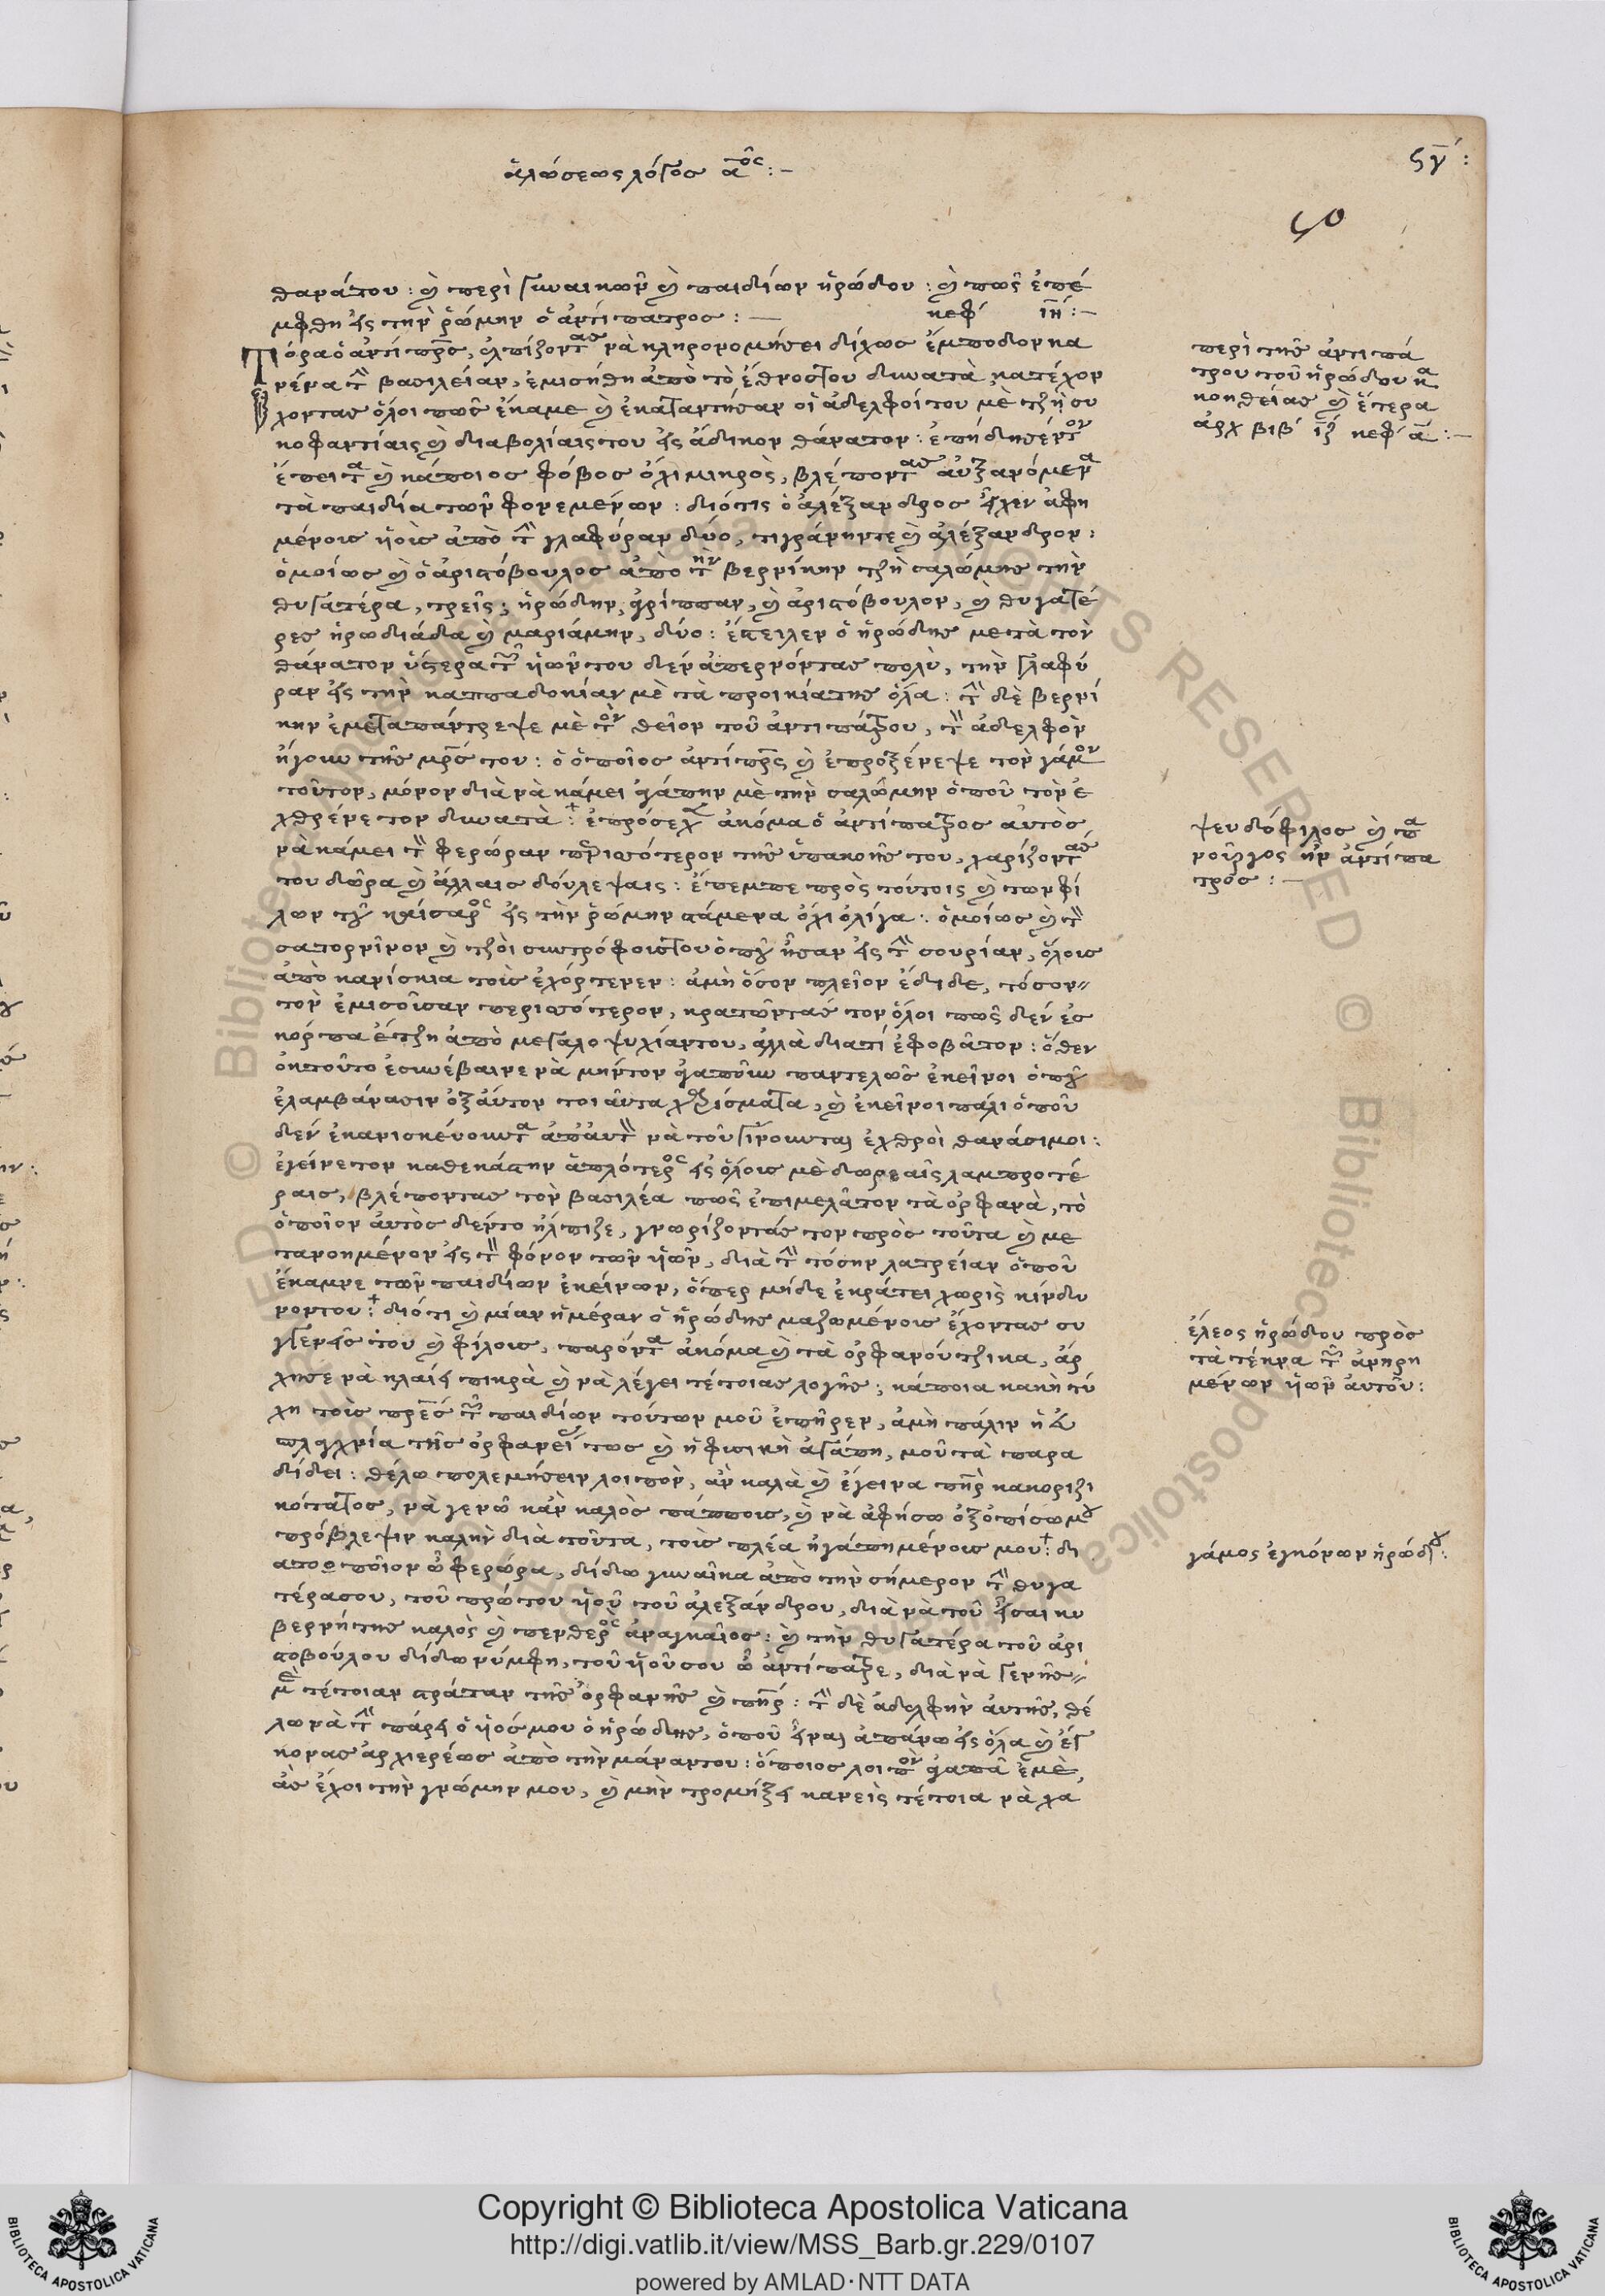 ἁλώσεως λόγος αος:-
ϟγ´:
90
θανάτου: καὶ περὶ γυναικῶν καὶ παιδίων ἡρώδου: καὶ πῶς ἐπέ
μφθη εἰς τὴν ῥώμην ὁ ἀντίπατρος: — κεφ´ ιη´:-
Τόρα ὁ ἀντίπρος, ἐλπίζοντας νὰ κληρονομήσει δίχως ἔμποδον κα
νένα τὴν βασιλείαν, ἐμισήθη ἀπὸ τὸ ἔθνος του δυνατὰ, κατέχον
χοντας ὅλοι πῶς ἔκαμε καὶ ἐκαταντήσαν οἱ ἀδελφοί του μὲ τζὴ συ
κοφαντίαις καὶ διαβολίαις του εἰς ἄδικον θάνατον:
ἔπειτα καὶ κάποιος φόβος ὄχι μικρὸς, βλέποντας αὐξανόμενα
τὰ παιδία τῶν φονεμένων: διότις ὁ ἀλέξανδρος εἶχεν ἀφη
μένοις ὑοὶς ἀπὸ τὴν γλαφύραν δύο, τιγράνηντε καὶ ἀλέξανδρον:
ὁμοίως καὶ ὁ ἀριστόβουλος ἀπὸ τὴν βερνίκην τζὴ σαλώμης τὴν
θυγατέρα, τρεῖς; ἡρώδην, ἀγρίππαν, καὶ ἀριστόβουλον, καὶ θυγατέ
ρες ἡρωδιάδα καὶ μαριάμην, δύο: ἔστειλεν ὁ ἡρώδης μετὰ τὸν
θάνατον ὕστερα τῶν ὑῶν του δὲν ἀπερνόντας πολὺ, τὴν γλαφύ
ραν εἰς τὴν καππαδοκίαν μὲ τὰ προικιάτης ὅλα: τὴν δὲ βερνί
κην ἐμεταπάντρεψε μὲ τὸν θεῖον τοῦ ἀντιπάτρου, τὸν ἀδελφὸν
ἤγουν τῆς μρός του: ὁ ὁποῖος ἀντίπρς καὶ ἐπροξένεψε τὸν γάμον
τοῦτον, μόνον διὰ νὰ κάμει ἀγάπην μὲ τὴν σαλώμην ὁποῦ τὸν ἐ
χθρένετον δυνατὰ: ἐπρόσεχε ἀκόμα ὁ ἀντίπατρος αὐτὸς
νὰ κάμει τὸν φερώραν περισότερον τῆς ὑπακοῆς του, χαρίζοντας
του δῶρα καὶ ἄλλαις δούλεψαις: ἔπεμπε πρὸς τούτοις καὶ τῶν φί
λων τοῦ καίσαρος εἰς τὴν ῥώμην στάμενα ὄχι ὀλίγα: ὁμοίως καὶ τὸν
σατορνῖνον καὶ τζὸι συντρόφοις του ὁποῦ ἦσαν εἰς τὴν σουρίαν, ὅλοις
ἀπὸ κανίσκια τοὶς ἐχόρτενεν: ἀμὴ ὅσον πλεῖον ἔδιδε, τόσον
τὸν ἐμισοῦσαν περισότερον, κρατῶντας τον ὅλοι πῶς δὲν ἐσ
κόρπα ἔτζη ἀπὸ μεγαλοψυχίαντου, ἀλλὰ διατί ἐφοβᾶτον: ὅθεν
ἐκτοῦτο ἐσυνέβαινε νὰ μήντον ἀγαποῦν παντελῶς ἐκεῖνοι ὁποῦ
ἐλαμβάνασιν ἐξ αὐτὸν τοιαῦτα χαρίσματα, καὶ ἐκεῖνοι πάλι ὁποῦ
δὲν ἐκανισκένουντα ἀπ' αὐτὸν νὰ τοῦ γίνουνται ἐχθροὶ θανάσιμοι:
ἐγείνετον καθεκάστην ἁπλότερος εἰς ὅλοις μὲ δωρεαῖς λαμπροτέ
ραις, βλέποντας τὸν βασιλέα πῶς ἐπιμελᾶτον τὰ ὀρφανὰ, τὸ
ὁποῖον αὐτὸς δέντο ἤλπιζε, γνωρίζοντάς τον πρὸς τοῦτα καὶ με
τανοημένον εἰς τὸν φόνον τῶν ὑῶν, διὰ τὴν τόσην λατρείαν ὁποῦ
ἔκαμνε τῶν παιδίων ἐκείνων, ὅπερ μήδε ἐκράτει χωρὶς κίνδυ
νοντου: διότι καὶ μίαν ἡμέραν ὁ ἡρώδης μαζωμένοις ἔχοντας συ
γγενεῖς του καὶ φίλοις, παρόντα ἀκόμα καὶ τὰ ὀρφανούτζικα, ἄρ
χησε νὰ κλαίει πικρὰ καὶ νὰ λέγει τέτοιας λογῆς; κάποια κακὴ τύ
χη τοὶς πρες τῶν παιδίων τούτων μοῦ ἐπῆρεν, ἀμὴ πάλιν ἡ εὐ
σπλαγχνία τῆς ὀρφανείς τως καὶ ἡ φισικὴ ἀγάπη, μοῦ τὰ παρα
δίδει: θέλω πολεμήσειν λοιπὸν, ἂν καλὰ καὶ ἔγεινα πηρ κακοριζι
κότατος, νὰ γενῶ κἂν καλὸς πάππους, καὶ νὰ ἀφήσω ἐξοπίσω μου
πρόβλεψιν καλὴν διὰ τοῦτα, τοὶς πλέα ἠγαπημένοις μου: δι
ατο ποῖον ὦ φερώρα, δίδω γυναῖκα ἀπὸ τὴν σήμερον τὴν θυγα
τέρασου, τοῦ πρώτου ὑοῦ τοῦ ἀλεξάνδρου, διὰ νὰ τοῦ εἶσαι κυ
βερνήτης καλὸς καὶ πενθερὸς ἀναγκαῖος: καὶ τὴν θυγατέρα τοῦ ἀρι
στοβούλου δίδω νύμφη, τοῦ ὑοῦσου ὦ ἀντίπατρε, διὰ νὰ γενῆς
μὲ τέτοιαν στράταν τῆς ὀρφανῆς καὶ πηρ: τὴν δὲ ἀδελφὴν αὐτῆς, θέ
λω νὰ τὴν πάρει ὁ ὑός μου ὁ ἡρώδης, ὁποῦ εἶναι ἀπάνω εἰς ὅλα καὶ ἔγ
κονας ἀρχιερέως ἀπὸ τὴν μάναντου: ὅποιος λοιπὸν ἀγαπᾶ ἐμὲ,
ἂς ἔχοι τὴν γνώμην μου, καὶ μὴν τρομήξει κανεὶς τέτοια νὰ χα
περὶ τῆς ἀντιπά
τρου τοῦ ἡρώδου κα
κοηθείας καὶ ἕτερα
ἀρχ βιβ´ ιζ κεφ´ α:-
ψευδόφιλος καὶ πα
νοῦργος ἦν ἀντίπα
τρος: —
ἔλεος ἡρώδου πρὸς
τὰ τέκνα τῶν ἀνῃρη
μένων ὑῶν αὐτοῦ:
γάμος ἐγκόνων ἡρώδου:
Copyright © Biblioteca Apostolica Vaticana
http://digi.vatlib.it/view/MSS_Barb.gr.229/0107
powered by AMLAD·NTT DATA
BIBLIOTECA APOSTOLICA VATICANA
BIBLIOTECA APOSTOLICA VATICANA